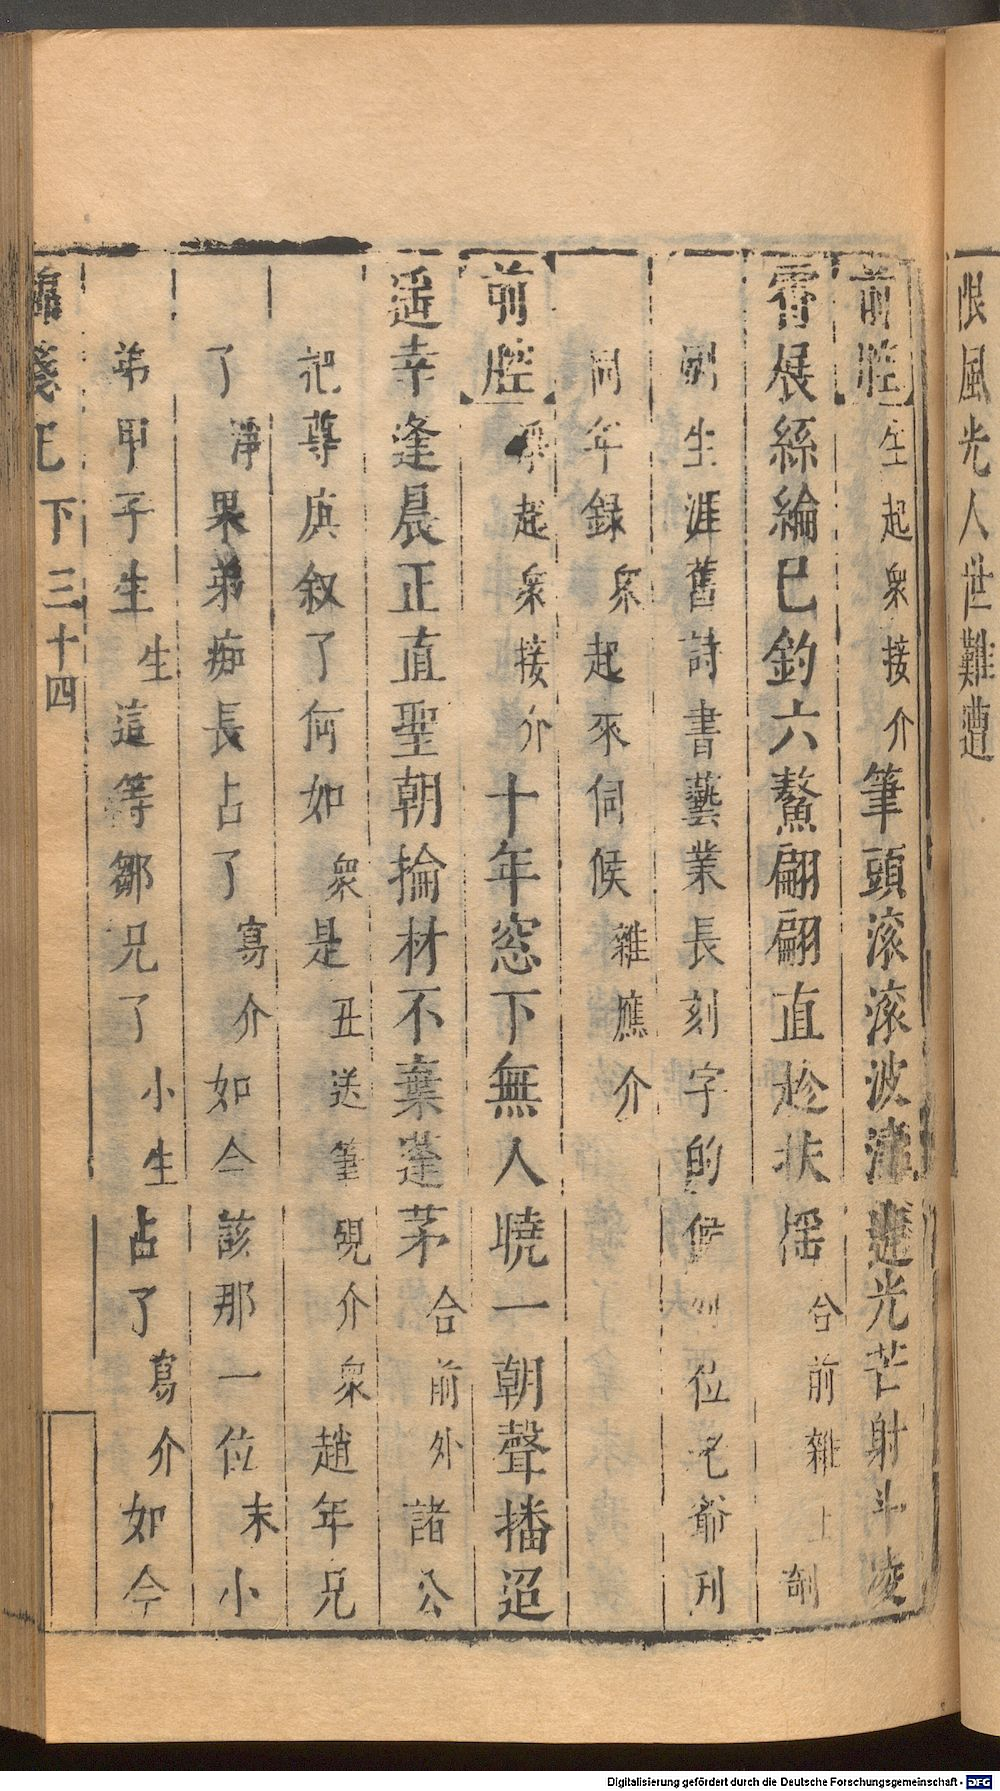 恨風光人世難遭
前腔生起衆接介筆頭滚滚波濤遶光芒射斗凌
霄展絲綸已釣六鰲翩翩直趂扶揺合前雜上剞
劂生涯舊詩書藝業長刻字的候列位老爺刋
同年録衆起來伺候雜應介
前腔起衆接介十年窓下無人曉一朝聲播迢
遥幸逢晨正直聖朝掄材不棄蓬茅合前外諸公
把尊庚叙了何如衆是丑送筆硯介衆趙年兄
了淨果弟痴長占了寫介如今該那一位末小
弟甲子生生這等鄒兄了小生占了寫介如今
箋記 下 三十四
Digitalisierung gefördert durch die Deutsche Forschungsgemeinschaft - DFG